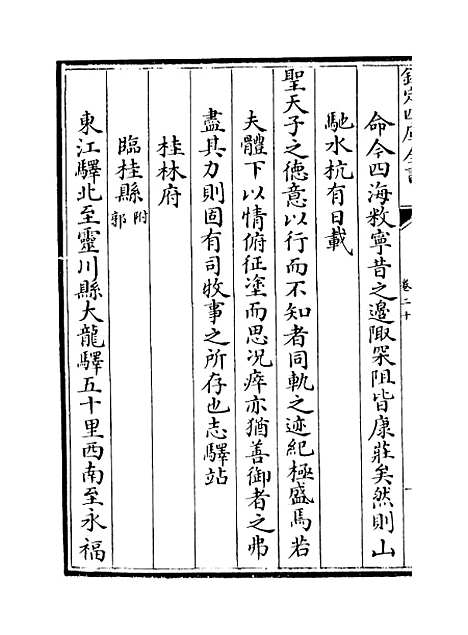 欽定四庫全書
卷二十
命今四海敉寧昔之邊陬罙阻皆康莊矣然則山
馳水杭有日載
聖天子之德意以行而不知者同軌之迹紀極盛焉若
夫體下以情俯征塗而思况瘁亦猶善御者之弗
盡其力則固有司牧事之所存也志驛站
桂林府
臨桂縣附郭
東江驛北至靈川縣大龍驛五十里西南至永福